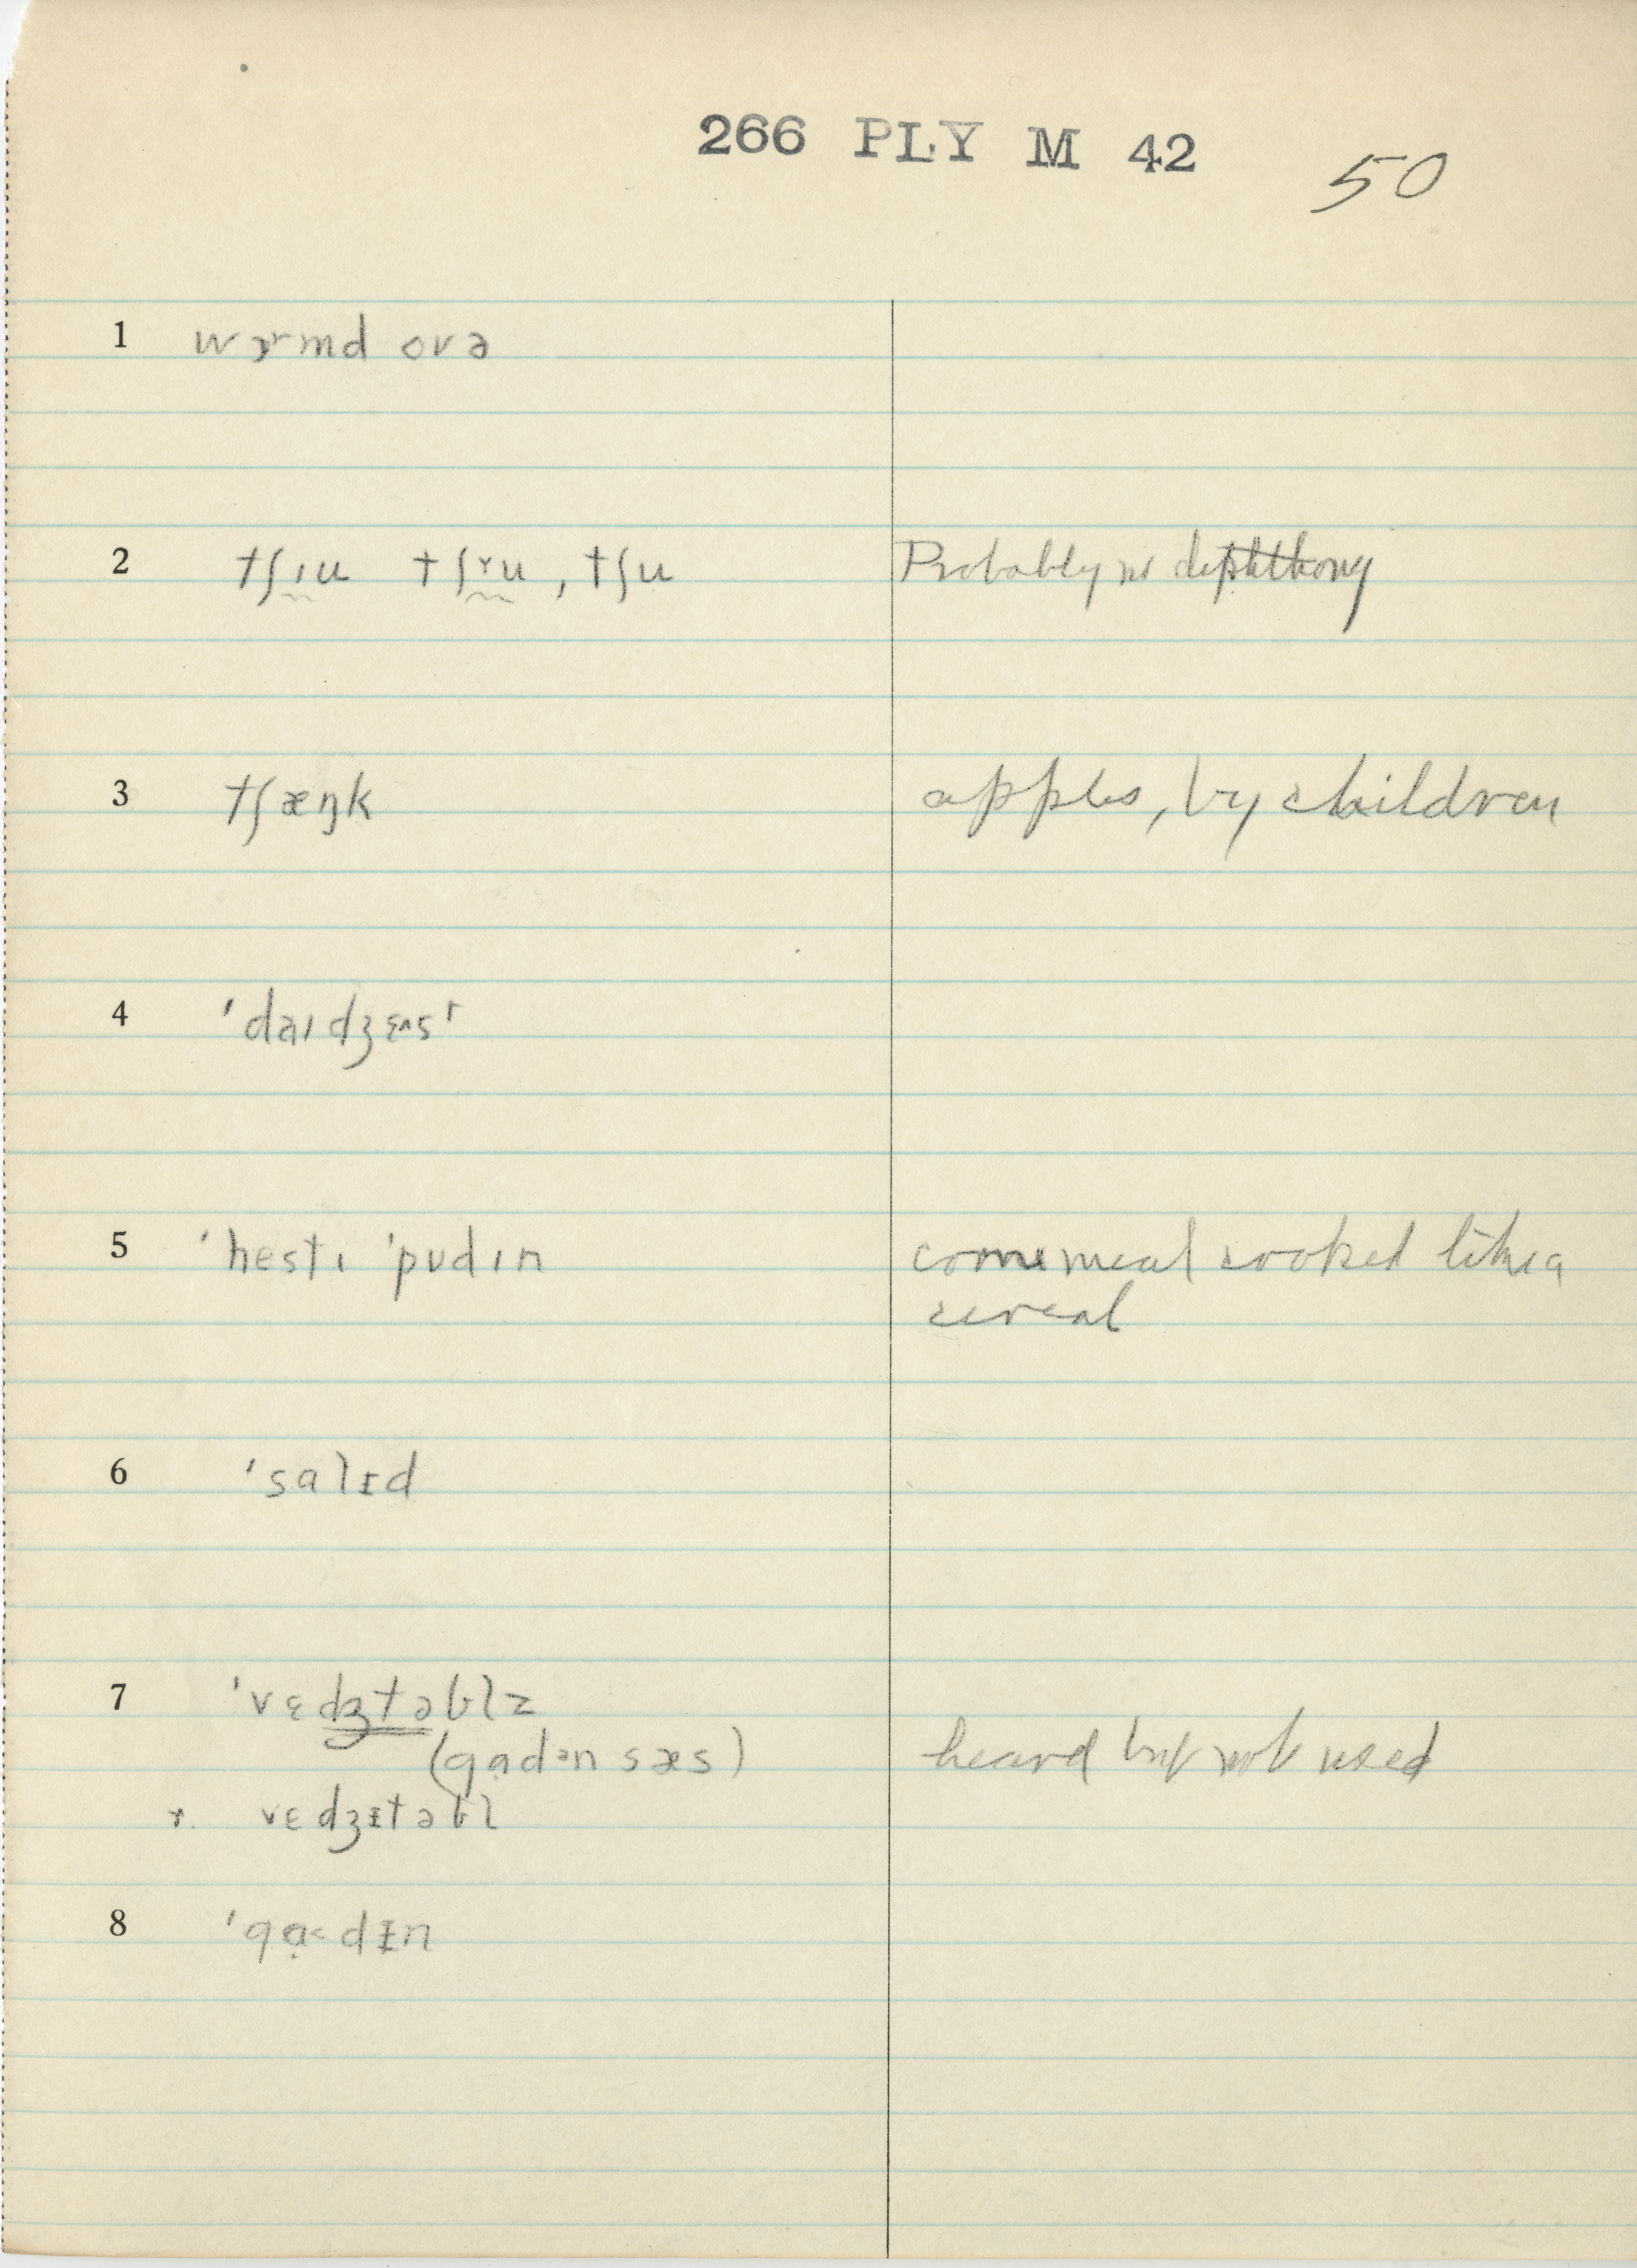 266 PLY M 42 50
1 wɔɚmd ovə
2 tʃɪu tʃɤu, tʃu Probably no diphthong
3 tʃæŋk apples, by children
4 'daɪdʒɛʌst
5 'hestɪ 'pʊdɪn corn meal cooked like a
cereal
6 'salɪd
7 'vɛdʒtəblz
(gɑdən sæs) heard but not used
r. vɛdʒɪtəbl
8 'gɑ˂dɪn